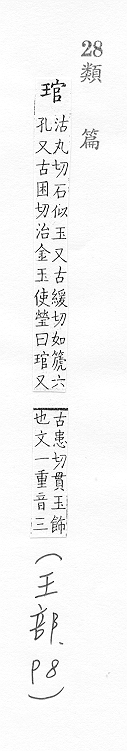 28類篇
琯
沽丸切石似玉又古緩切如篪六
孔又古困切治金玉使瑩曰琯又
古患切貫玉飾
也文一重音三
(王部、
P8)